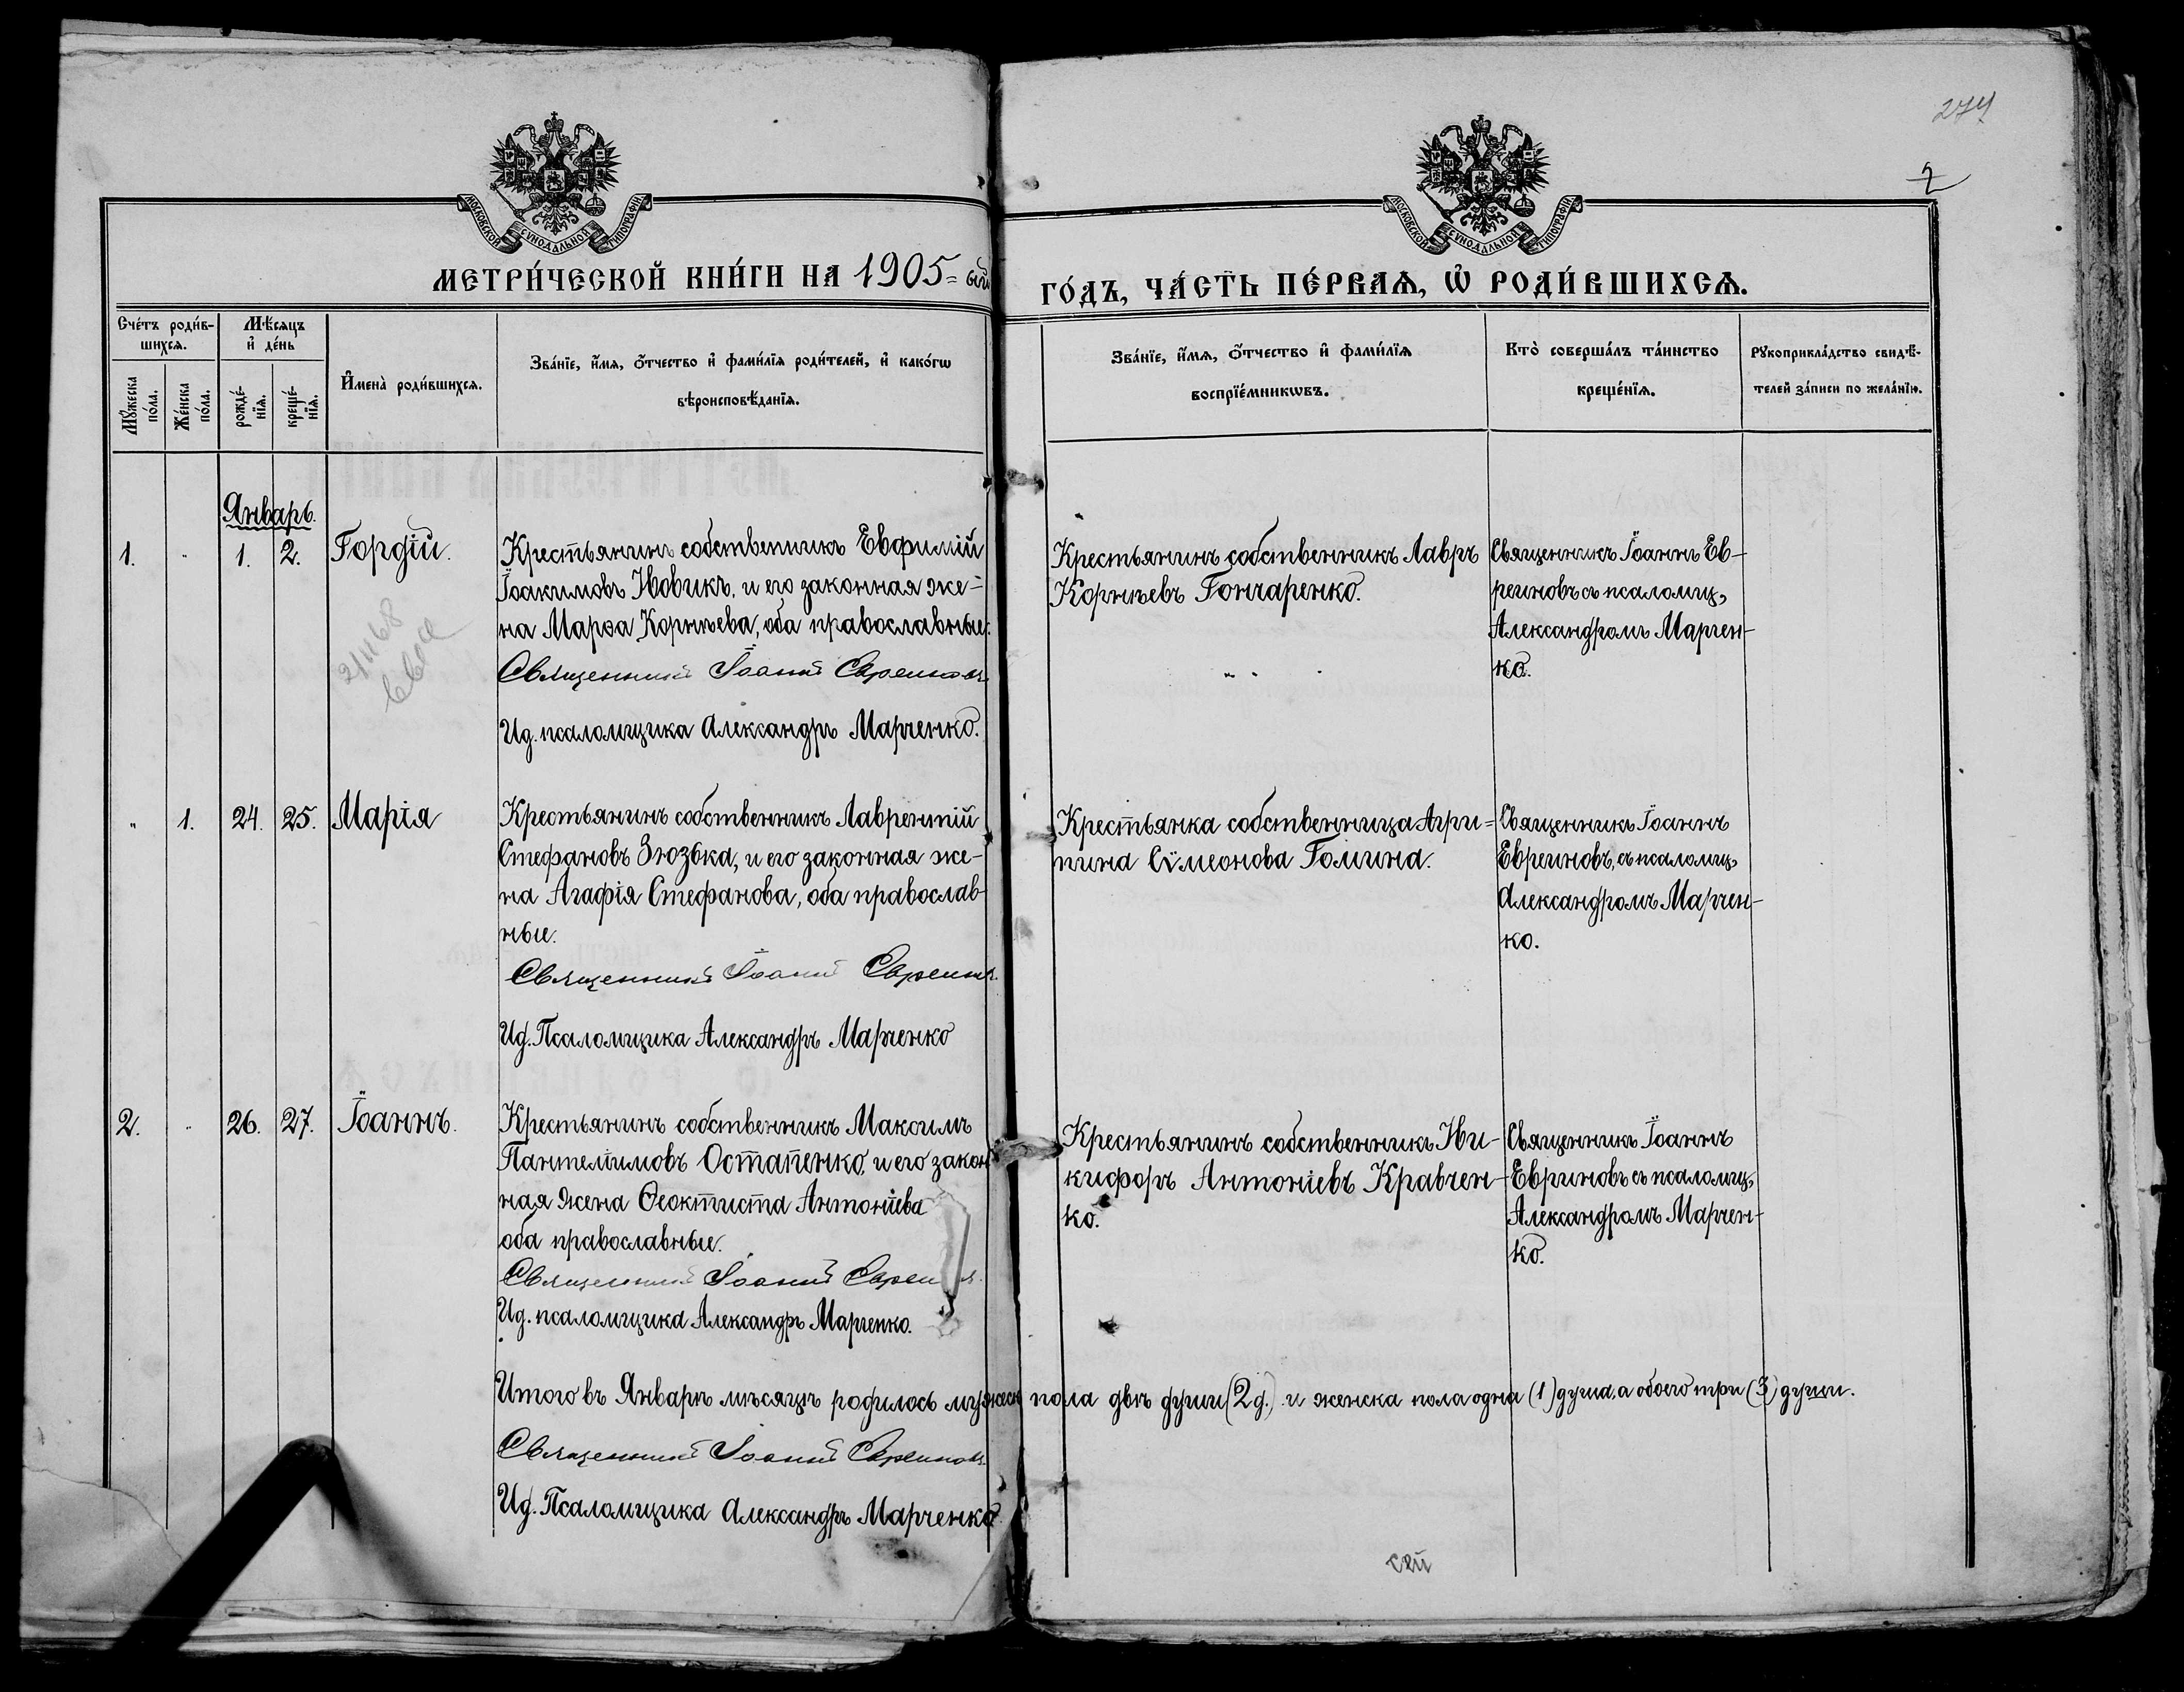 274
2
МОСКОВСКОЙ СУНОДАЛЬНОЙ ТИПОГРАФІИ
МОСКОВСКОЙ СУНОДАЛЬНОЙ ТИПОГРАФІИ
МЕТРИ́ЧЕСКОЙ КНИ́ГИ НА 1905=
ГО́ДЪ, ЧА́СТЬ ПЕ́РВАѦ, Ѡ҆ РОДИ́ВШИХСѦ.
Сче́тъ роди́в-
шихсѧ.
Мѣ́сяцъ
и҆ де́нь
Мꙋ́жеска по́ла.
Же́нска по́ла.
рожде́-
нїѧ.
креще́-
нїѧ.
И҆мена̀ роди́вшихсѧ.
Зва́нїе, и҆́мѧ, ѻ҆́тчество и҆ фами́лїѧ роди́телей, и҆ како́гѡ
вѣроисповѣ́данїѧ.
Зва́нїе, и҆́мѧ, ѻ҆́тчество и҆ фами́лїѧ
воспрїе́мникѡвъ.
Кто̀ соверша́лъ та́инство
креще́нїѧ.
Рꙋкоприкла́дство свидѣ́-
телей за́писи по жела́нїю.
Январь.
1. " 1. 2. Гордій.
Крестьянинъ собственникъ Евфимій
Іоакимовъ Новикъ, и его законная же-
на Марѳа Корнѣева, оба православные.
Священникъ Іоаннъ Евреиновъ
Ид. псаломщика Александръ Марченко.
Крестьянинъ собственникъ Лавръ
Корнѣевъ Гончаренко.
Священникъ Іоаннъ Ев-
реиновъ съ псаломщ.
Александромъ Марчен-
ко.
" 1. 24. 25. Марія
Крестьянинъ собственникъ Лаврентій
Стефановъ Зюзька, и его законная же-
на Агафія Стефанова, оба православ-
ные.
Священникъ Іоаннъ Евреиновъ
Ид. Псаломщика Александръ Марченко
Крестьянка собственница Агри-
пина Сѵмеонова Голина.
Священникъ Іоаннъ
Евреиновъ, съ псаломщ.
Александромъ Марчен-
ко.
2. " 26. 27. Іоаннъ.
Крестьянинъ собственникъ Максимъ
Пантелимовъ Остапенко, и его закон
ная жена Ѳеоктиста Антоніева
оба православные.
Священникъ Іоаннъ
Ид. псаломщика Александръ Марченко.
Крестьянинъ собственникъ Ни-
кифоръ Антоніевъ Кравчен-
ко.
Священникъ Іоаннъ
Евриновъ съ псаломщ.
Александромъ Марчен-
ко.
Итого въ Январѣ мѣсяцѣ родилось мужеск пола двѣ души (2 д.) и женска пола одна (1) душа, а обоего три (3) души.
Священникъ Іоаннъ Евреиновъ
Ид. Псаломщика Александръ Марченко